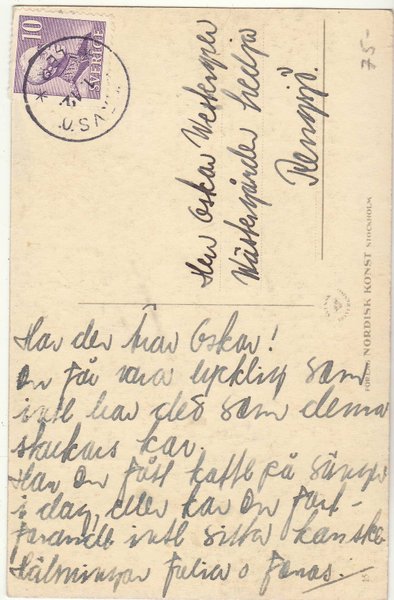 10
SVERIGE
75-
Herr Oskar Westerper
Västergärder hedja
Rengsjö.
FÖRLAG NORDISK KONST STOCKHOLM
Har der kära Oskar!
Du får vara lycklig som
inte har det som denna
stackars kar.
Har Du fått kaffe på sängen
i dag, eller kan Du fort-
farande inte sitta kanske
Hälsningar Felia o Jonas.